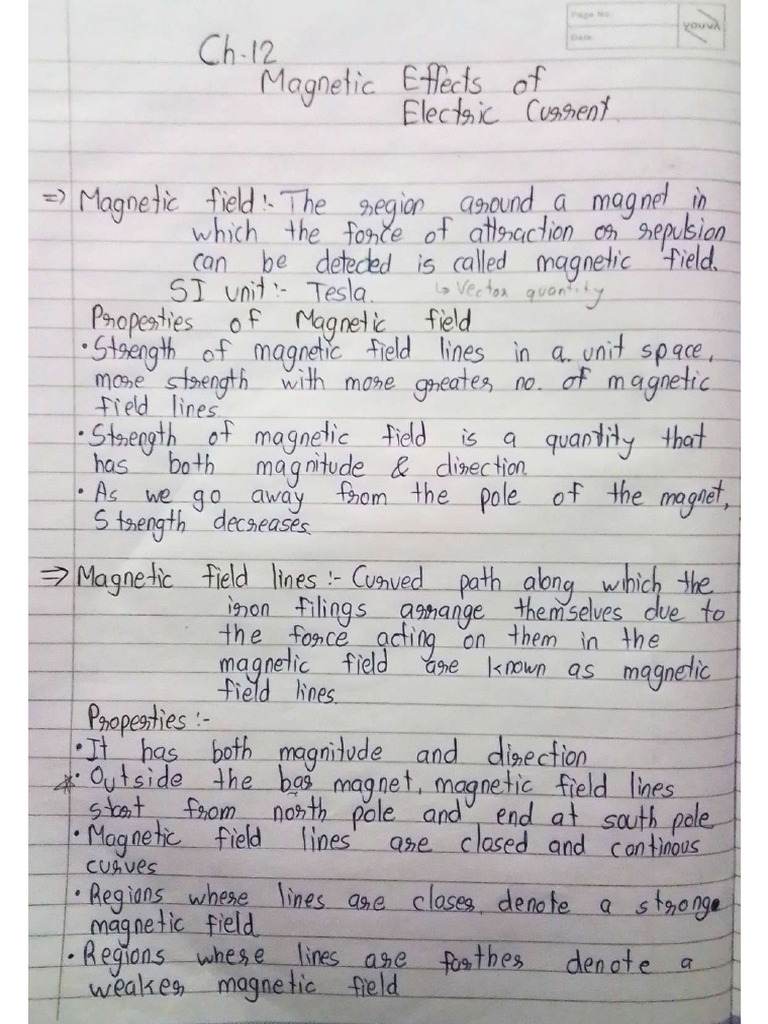 Page No:
Date:
youva
Ch.12
Magnetic Effects of
Electric Current
=> Magnetic field :- The region around a magnet in
which the force of attraction or repulsion
can be detected is called magnetic field.
SI unit :- Tesla. ↳ Vector quantity
Properties of Magnetic field
• Strength of magnetic field lines in a unit space,
more strength with more greater no. of magnetic
field lines
• Strength of magnetic field is a quantity that
has both magnitude & direction
• As we go away from the pole of the magnet,
Strength decreases.
=> Magnetic field lines :- Curved path along which the
iron filings arrange themselves due to
the force acting on them in the
magnetic field are known as magnetic
field lines.
Properties :-
• It has both magnitude and direction
* • Outside the bar magnet, magnetic field lines
start from north pole and end at south pole
• Magnetic field lines are closed and continous
curves
• Regions where lines are closer denote a stronge
magnetic field
• Regions where lines are farther denote a
weaker magnetic field